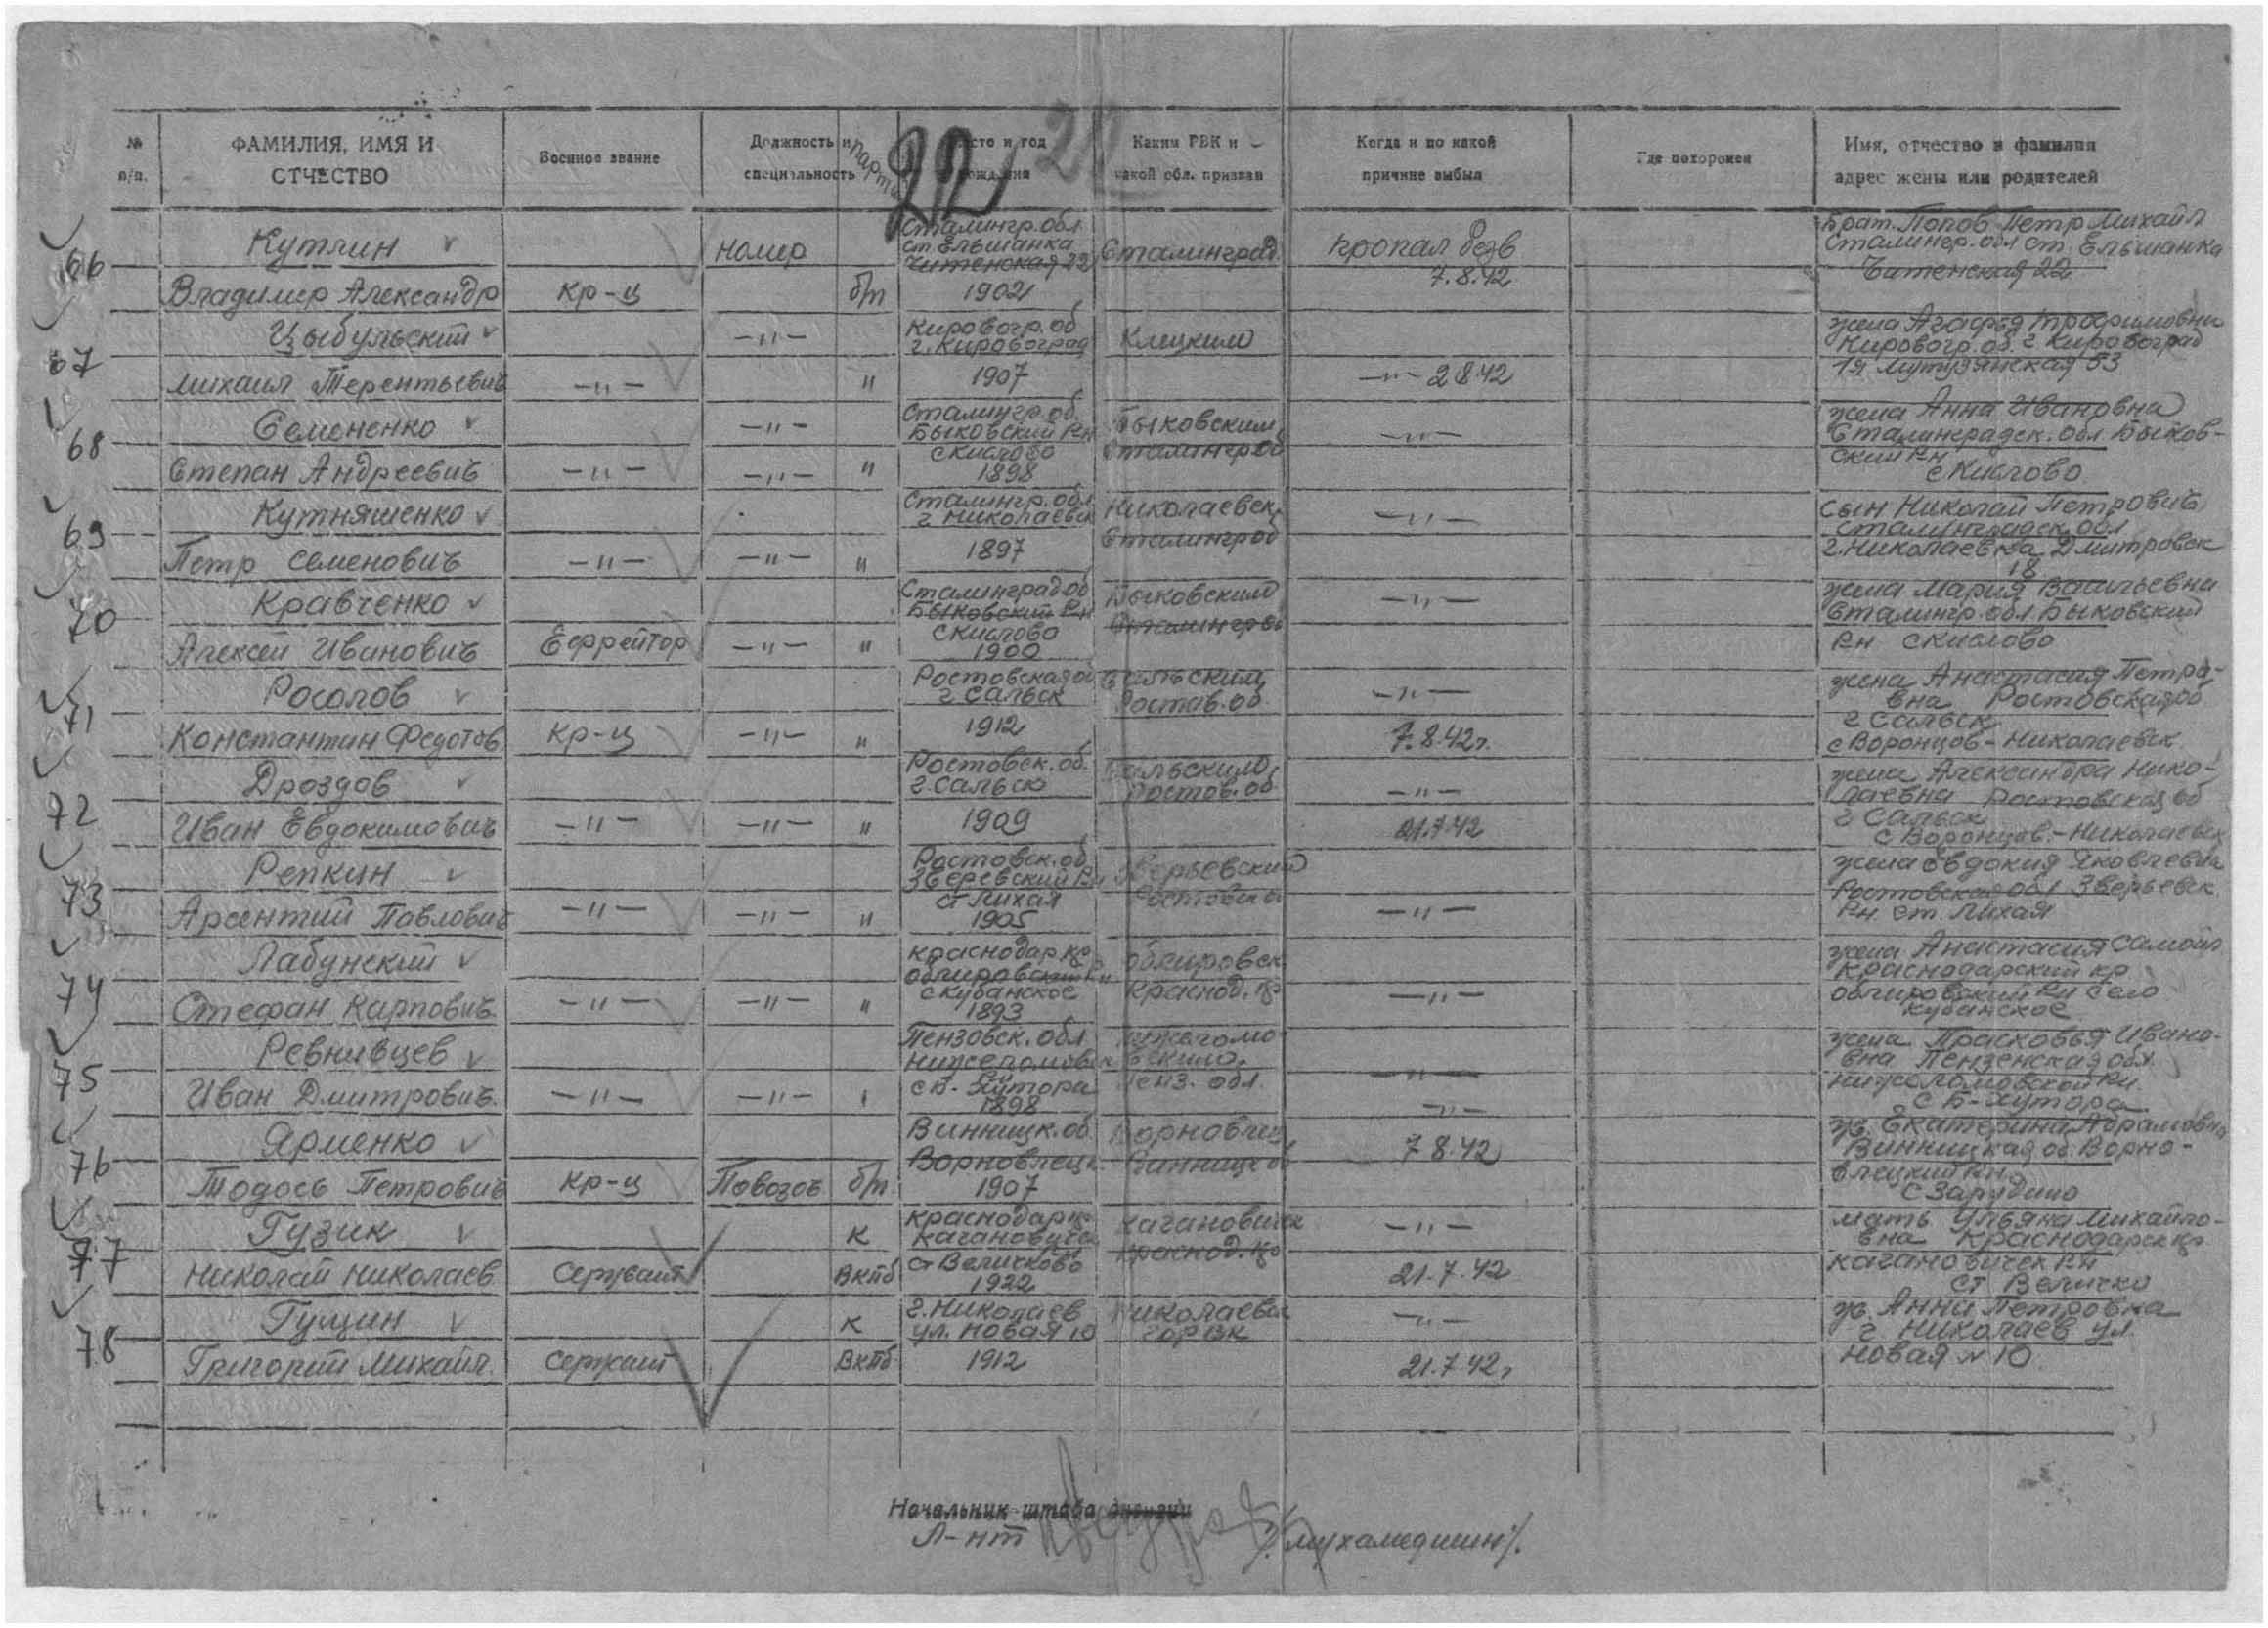 22 20
№ п/п.
ФАМИЛИЯ, ИМЯ И ОТЧЕСТВО
Военное звание
Должность и специальность
парт
Место и год рождения
Каким РВК и какой обл. призван
Когда и по какой причине выбыл
Где похоронен
Имя, отчество и фамилия адрес жены или родителей
66
Кутлин
Владимир Александр
Кр-ц
номер
б/п
Сталингр. обл
ст. Ельшанка
Читенская 22
1902
Сталинград
пропал безв
7.8.42
Брат. Попов Петр Михайл
Сталингр. обл ст. Ельшанка
Читенская 22
67
Цыбульский
Михаил Терентьевич
-"-
-"-
"
Кировогр. об
г. Кировоград
1907
Клецким
-"- 2 8.42
жена Агафья Трофимовна
Кировогр. об. г Кировоград
53
68
Семененко
Степан Андреевич
-"-
-"-
-"-
"
Сталингр. об.
Быковский Р-н
с Кислово
1898
Быковским
Сталингр об
-"-
жена Анна Ивановна
Сталинградск. обл. Быков-
ский Р-н
с Кислово
69
Кутняшенко
Петр Семенович
-"-
-"-
"
Сталингр. обл
г Николаевск
1897
Николаевск.
Сталингр об
-"-
сын Николай Петрович
Сталинградск. обл
г. Николаевка Дмитровск
18
70
Кравченко
Алексей Иванович
Ефрейтор
-"-
"
Сталинград об
Быковский Р-н
с Кислово
1900
Быковским
Сталингр об
-"-
жена Мария Васильевна
Сталингр. обл Быковский
Р-н с Кислово
71
Росолов
Константин Федотов
Кр-ц
-"-
"
Ростовская об
г Сальск
1912
Сальским
Ростов. об.
-"-
7.8.42г.
жена Анастасия Петро-
вна Ростовская об
г Сальск
с Воронцов-Николаевск
72
Дроздов
Иван Евдокимович
-"-
-"-
"
Ростовск. об.
г. Сальск
1909
Сальским
Ростов. об
-"-
21.7.42
жена Александра Нико-
лаевна Ростовская об
г Сальск
с Воронцов.-Николаевск
73
Репкин
Арсентий Павлович
-"-
-"-
"
Ростовск. об.
Зверевский Р-н
ст Лихая
1905
Зверьевский
-"-
жена Евдокия Яковлевна
Ростовская обл Зверьевск.
Р-н. ст. Лихая
74
Лабунский
Стефан Карпович
-"-
-"-
"
Краснодар кр
с Кубанское
1893
Краснод. кр
-"-
жена Анастасия Самойл
Краснодарский кр
Р-н село
Кубанское
75
Ревнивцев
Иван Дмитрович.
-"-
-"-
Пензовск. обл
Нижеломовск
Р-н
с Б-Хутора
1898
Нижеломо-
вским.
Пенз. обл.
-"-
-"-
жена Прасковья Ивано-
вна Пензенская обл.
Нижеломовской Р-н.
с Б-Хутора
76
Ярменко
Тодось Петрович
Кр-ц
Повозоч
б/п
Винницк. об
Ворновлецк.
1907
Винницк об
7 8.42
ж. Екатерина Абрамовна
Винницкая об. Ворно-
влецкий Р-н.
77
Гузик
Николай Николаев
Сержант
К
ВКПб
Краснодар кр
ст Величково
1922
Кагановичск
Краснод. кр
-"-
21.7.42
мать Ульяна Михайло-
вна Краснодарск кр
Кагановичск Р-н
ст Величко
78
Гущин
Григорий Михайл.
Сержант
К
ВКПб
г. Николаев
ул. Новая 10
1912
Николаевск
гор ВК
-"-
21.7.42г
ж. Анна Петровна
г. Николаев ул.
Новая № 10.
Начальник штаба дивизии
Л-нт
/Мухамедшин/.